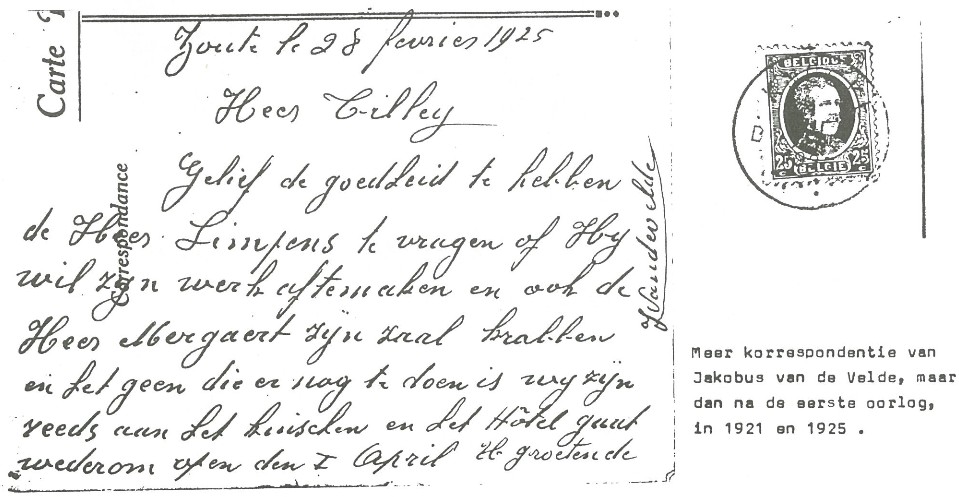 Carte
Correspondance
Zoute le 28 fevrier 1925
Heer Tilley
Gelief de goedheid te hebben
de Heer Limpens te vragen of Hy
wil zyn werk aftemaken en ook de
Heer Mergaert zyn zaal krabben
en het geen die er nog te doen is wy zyn
reeds aan het kuischen en het Hôtel gaat
wederom open den I April U groetende
JVandevelde
BELGIQUE
25 25
BELGIE
Meer korrespondentie van
Jakobus van de Velde, maar
dan na de eerste oorlog,
in 1921 en 1925 .